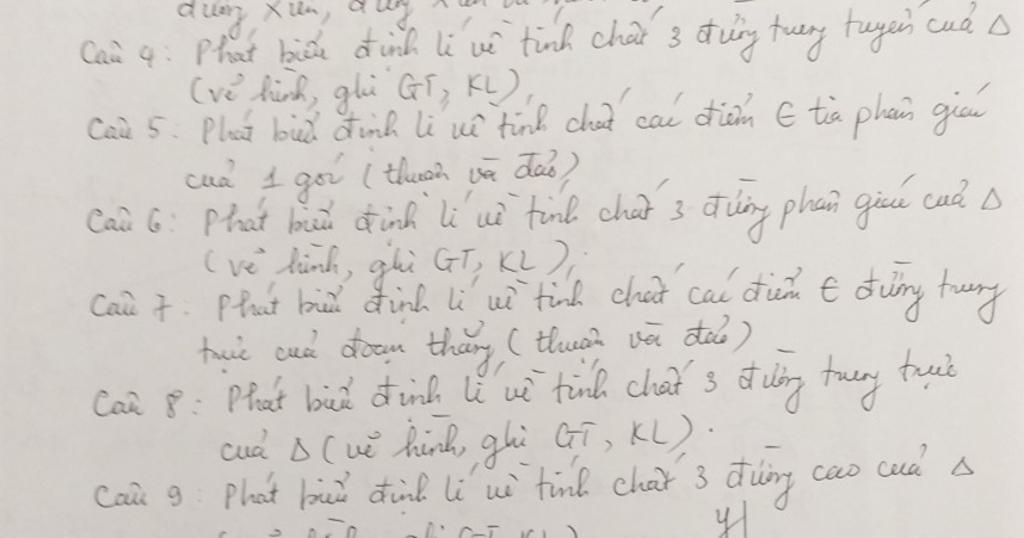 Câu 4: Phát biểu định lí về tính chất 3 đường trung tuyến của Δ
(vẽ hình, ghi GT, KL),
Câu 5: Phát biểu định lí về tính chất các điểm ∈ tia phân giác
của 1 góc (thuận và đảo)
Câu 6: Phát biểu định lí về tính chất 3 đường phân giác của Δ
(vẽ hình, ghi GT, KL),
Câu 7: Phát biểu định lí về tính chất các điểm ∈ đường trung
trực của đoạn thẳng, (thuận và đảo)
Câu 8: Phát biểu định lí về tính chất 3 đường trung trực
của Δ (vẽ hình, ghi GT, KL).
Câu 9: Phát biểu định lí về tính chất 3 đường cao của Δ